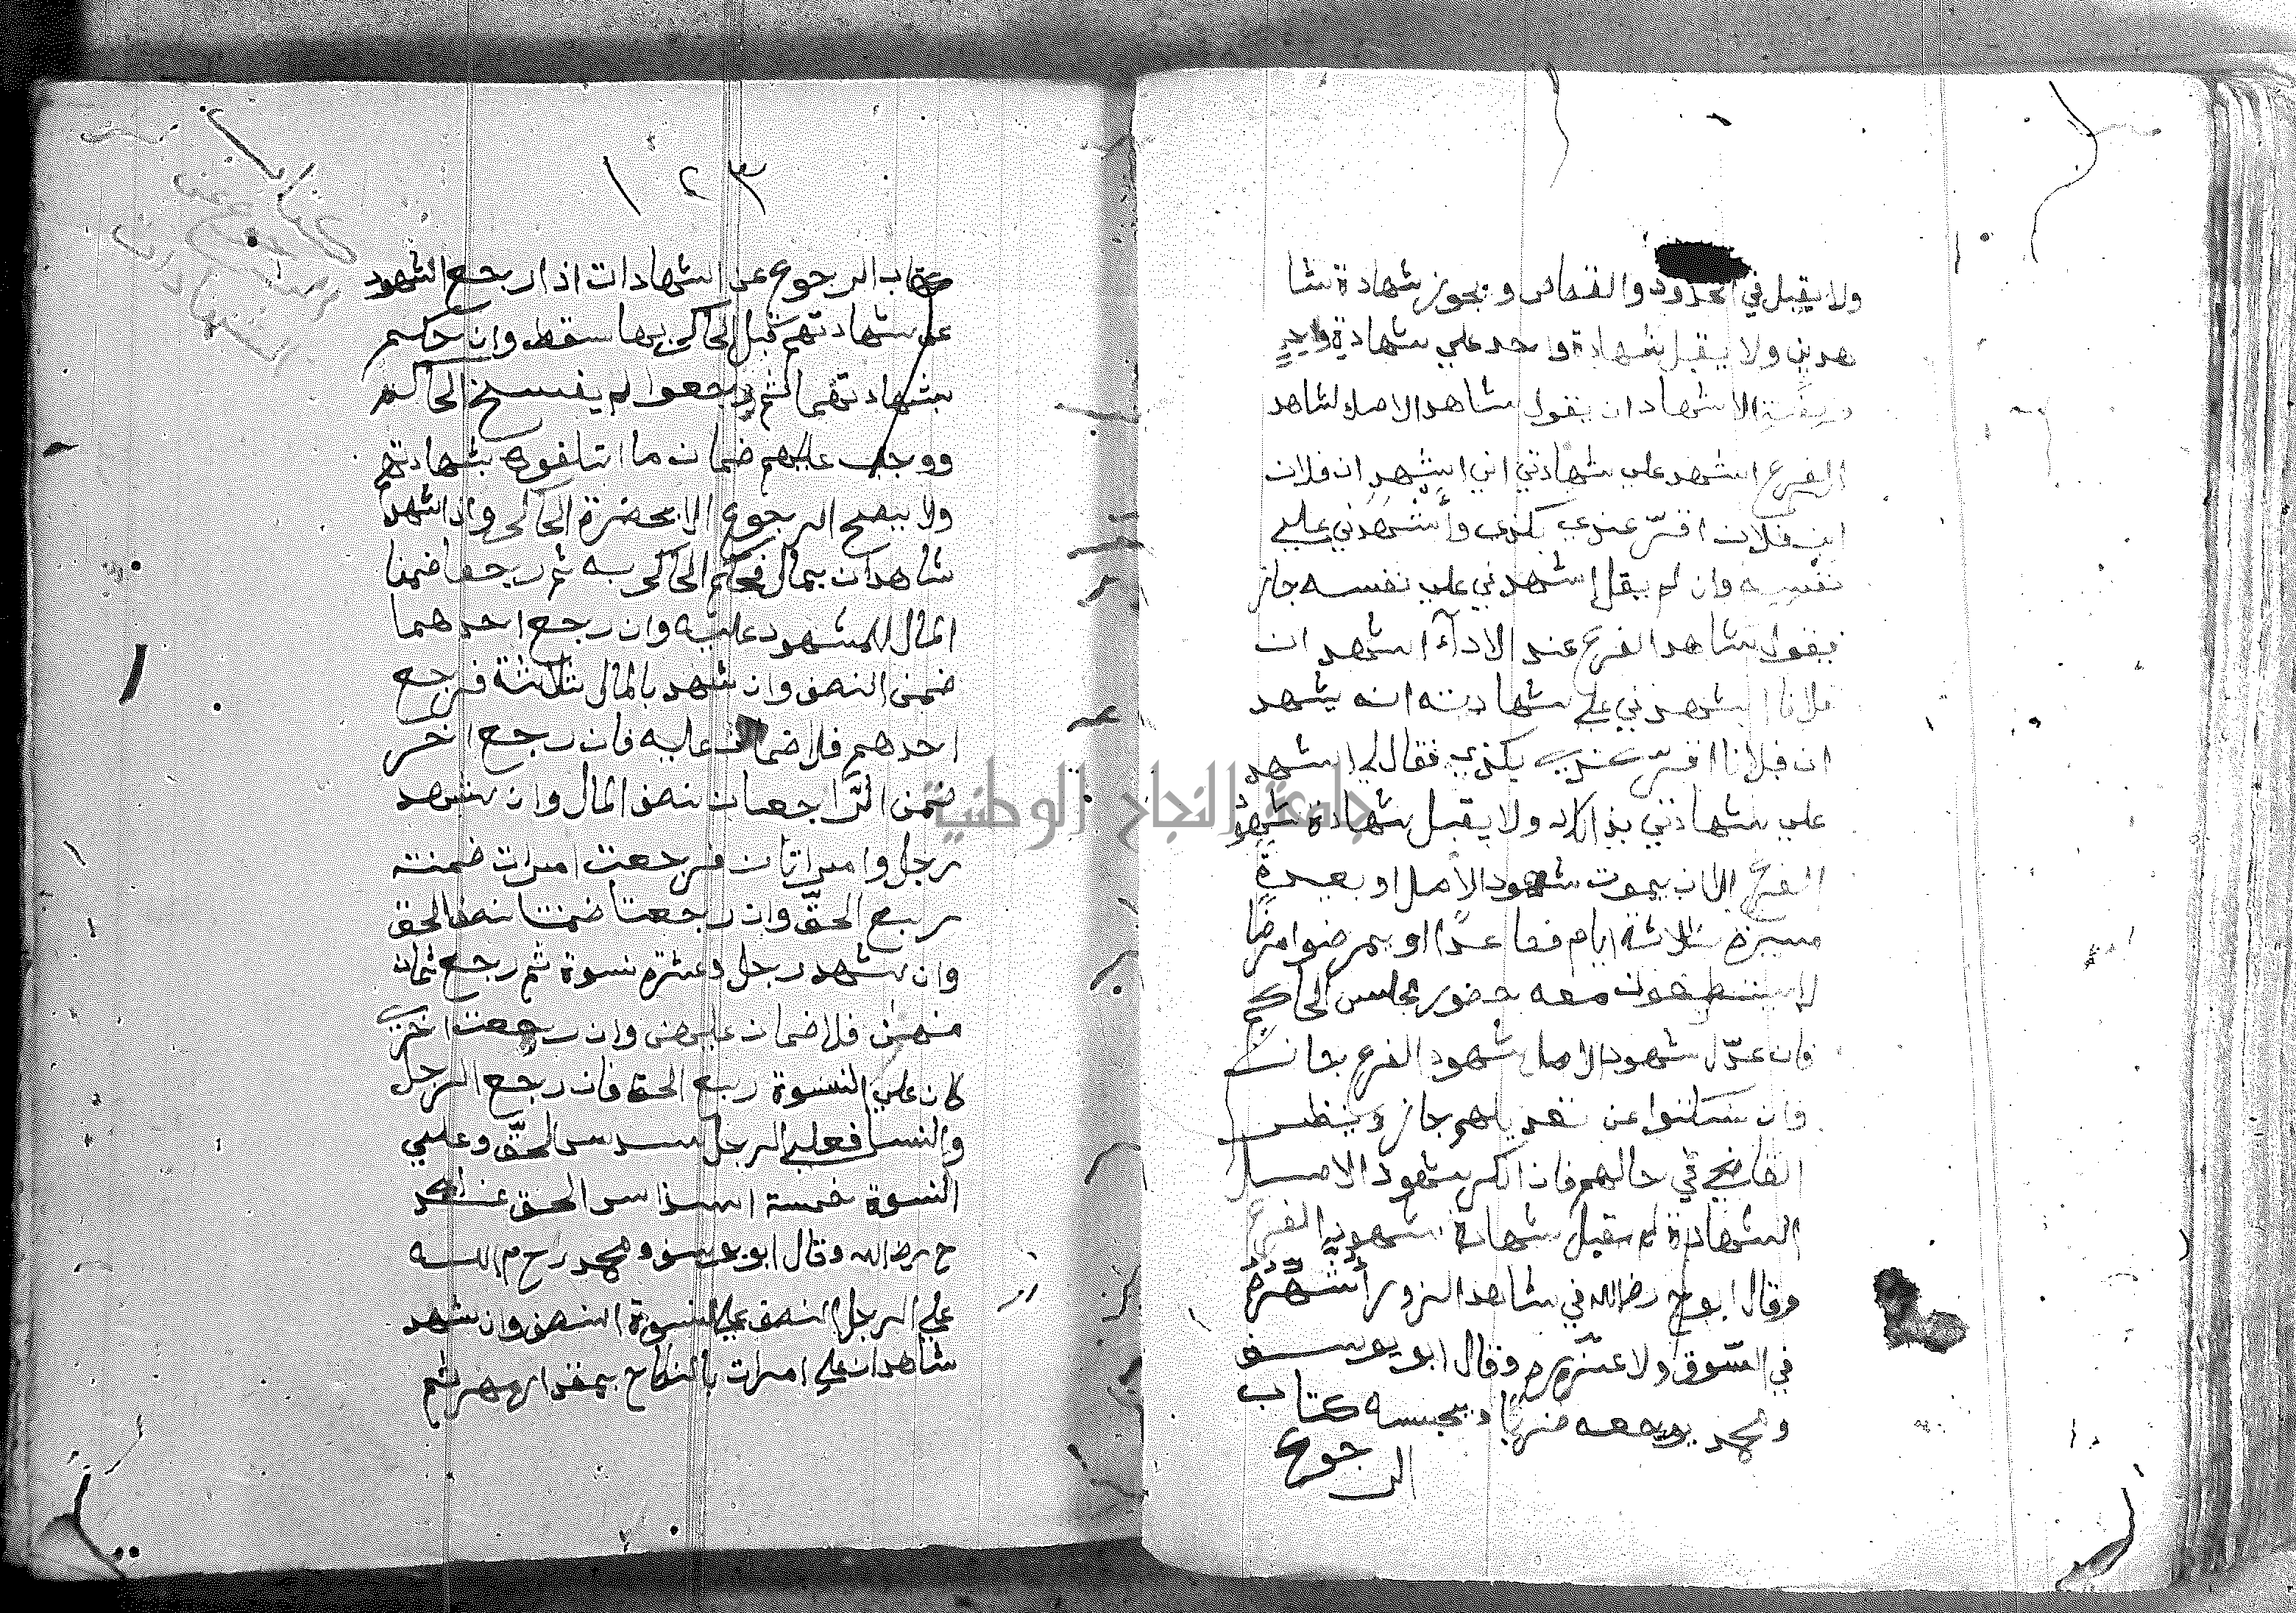 ولا يقبل في الحدود والقصاص ويجوز شهادة شا
هدين ولا يقبل شهادة واحد علي شهادة واحد
وصفة الاشهاد ان يقول شاهد الاصل لشاهد
الفرع اشهد علي شهادتي اني اشهد ان فلان
ابن فلان اقرّ عندي بكذي وأشهدني علي
نفسه وان لم يقل اشهدني علي نفسه جاز
يقول شاهد الفرع عند الادآء اشهد ان
فلانا اشهدني علي شهادته انه يشهد
ان فلانا اقرّ عندي بكذي فقال لي اشهد
علي شهادتي بذالك ولا يقبل شهادة شهود
الفرع الا ان يموت شهود الاصل او بعيدة
مسيرة ثلاثة ايام فصاعدًا او يمرضوا مرضا
لا يستطيعون معه حضور مجلس الحاكم
فان عدّل شهود الاصل شهود الفرع جاز
فان سكتوا عن تعديلهم جاز وينظر
القاضي في حالهم فان انكر شهود الاصل
الشهادة لم تقبل شهادة شهود الفرع
وقال ابو ح رض الله في شاهد الزور أشهّره
في السّوق ولا عزّره وقال ابو يوسف
ومحمد يوجعه ضربًا ويحبسه كتاب
الرجوع
١٢٣
كتاب الرجوع عن الشهادات اذا رجع الشهود
عن شهادتهم قبل الحاكم بها سقط وان حكم
بشهادتهما ثم رجعوا لم يفسخ الحاكم
ووجب عليهم ضمان ما اتلفوه بشهادتهم
ولا يصح الرجوع الا بحضرة الحاكم واذا شهد
شاهدان بمال فحكم الحاكم به ثم رجعا ضمنا
المال للمشهود عليه وان رجع احدهما
ضمن النصف وان شهد بالمال ثلاثة فرجع
احدهم فلا ضمان عليه فان رجع اخر
ضمن الرّاجعان نصف المال وان شهد
رجل وامراتان فرجعت امرات ضمنت
ربع الحقّ وان رجعتا ضمنتا نصف الحق
وان شهد رجل وعشره نسوة ثم رجع ثمان
منهنّ فلا ضمان عليهن وان رجعت اخري
كان علي النسوة ربع الحق فان رجع الرجل
والنسا فعلي الرجل سدس الحقّ وعلي
النسوة خمسة اسداس الحق عند
ح رض الله وقال ابو يوسف ومحمد رح م الله
علي الرجل النصف علي النسوة النصف وان شهد
شاهدان علي امرات بالنكاح بمقدار مهر ثم
جامعة النجاح الوطنية